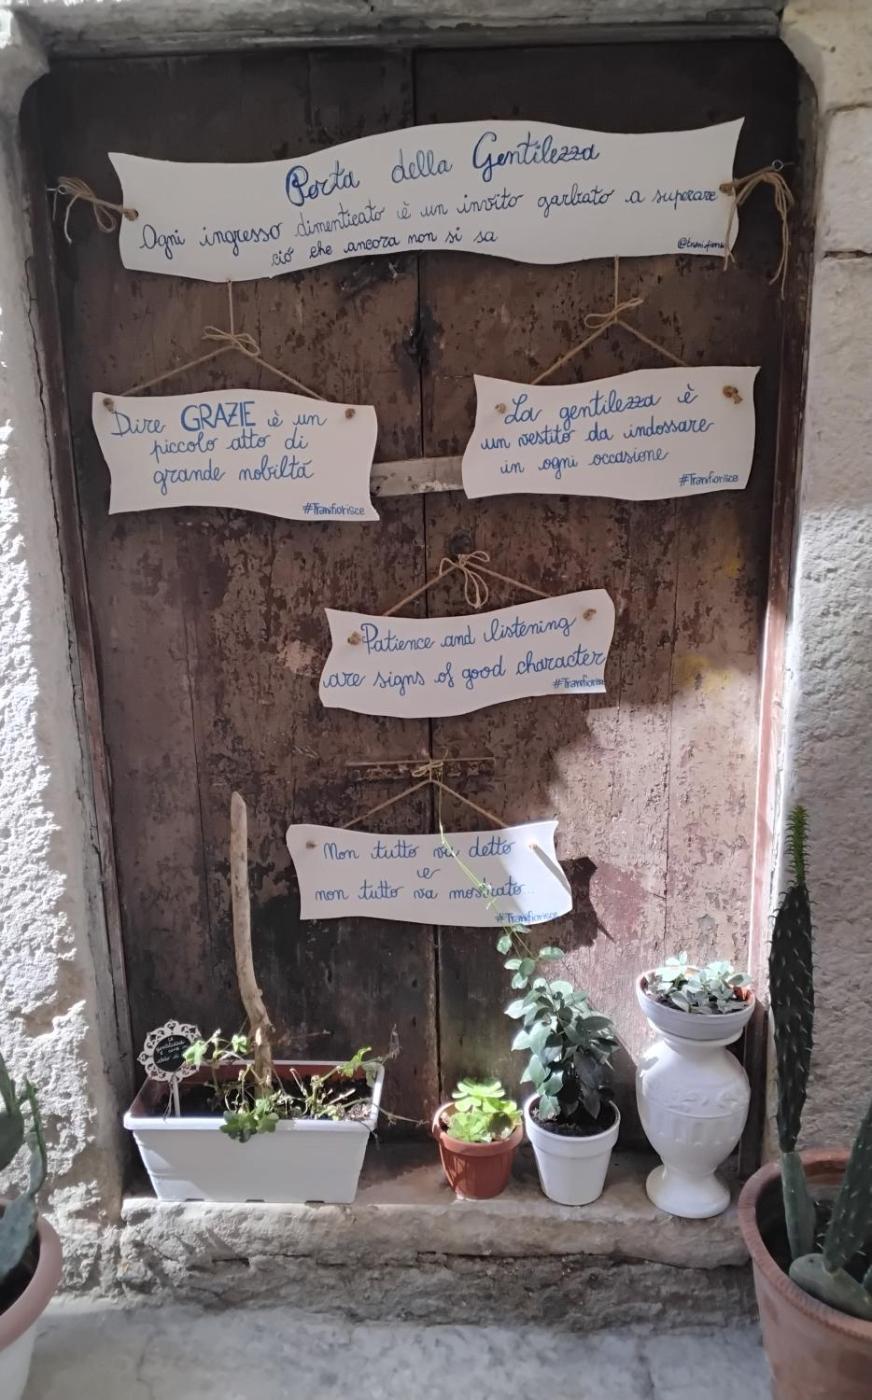 Porta della Gentilezza
Ogni ingresso dimenticato è un invito garbato a superare
ciò che ancora non si sa
Dire GRAZIE è un
piccolo atto di
grande nobiltà
#Tranifiorisce
La gentilezza è
un vestito da indossare
in ogni occasione
#Tranifiorisce
Patience and listening
are signs of good character
#Tranifiorisce
Non tutto va detto
e
non tutto va mostrato...
#Tranifiorisce